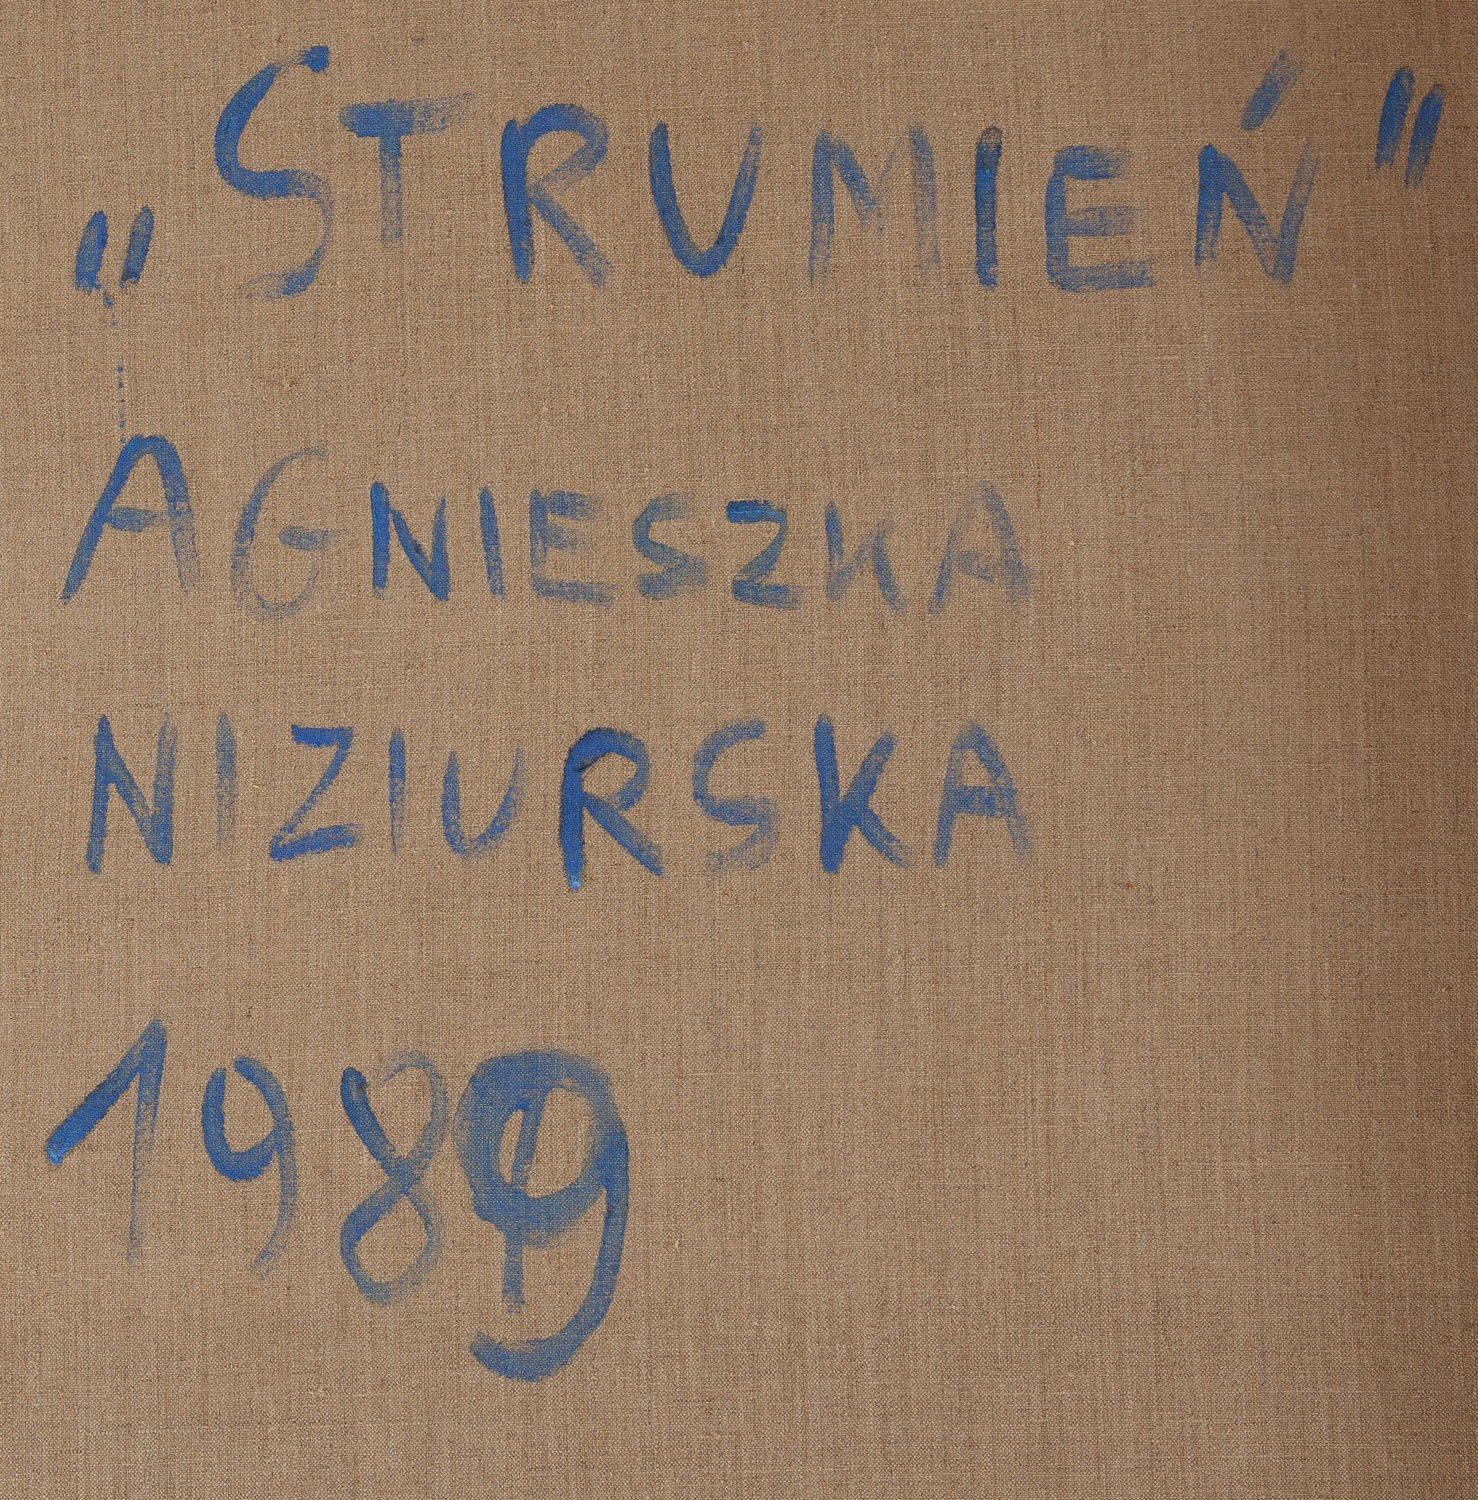 „STRUMIEŃ"
AGNIESZKA
NIZIURSKA
1989